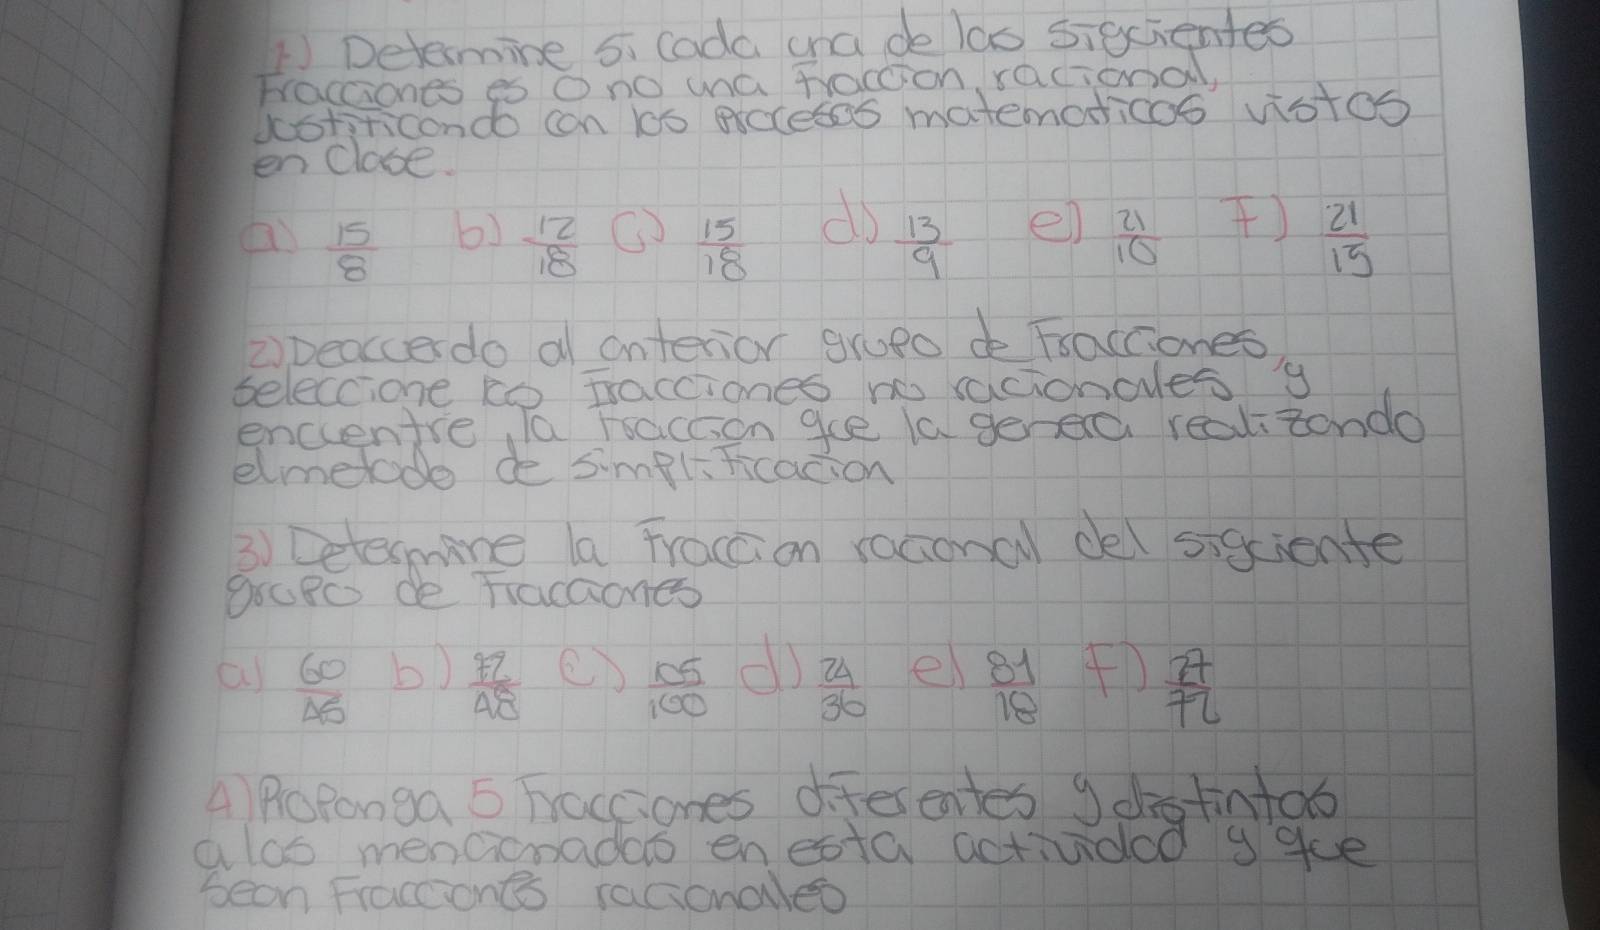 1) Determine si cada una de las siguientes
Fracciones es o no una fraccion racional,
Justificando con los procesos matematicos vistos
en clase.
a) 15/8 b) 12/18 c) 15/18 d) 13/9 e) 21/10 F) 21/15
2) Deacuerdo al anterior grupo de Fracciones,
seleccione las fracciones no racionales y
encuentre la fraccion que la genera realizando
elmetodo de simplificacion
3) Determine la fraccion racional del siguiente
grupo de Fracciones
a) 60/45 b) 72/48 c) 105/100 d) 24/36 e) 81/18 F) 27/72
4) Proponga 5 Fracciones diferentes y distintas
alas mencionadas en esta actividad y que
sean Fracciones racionales